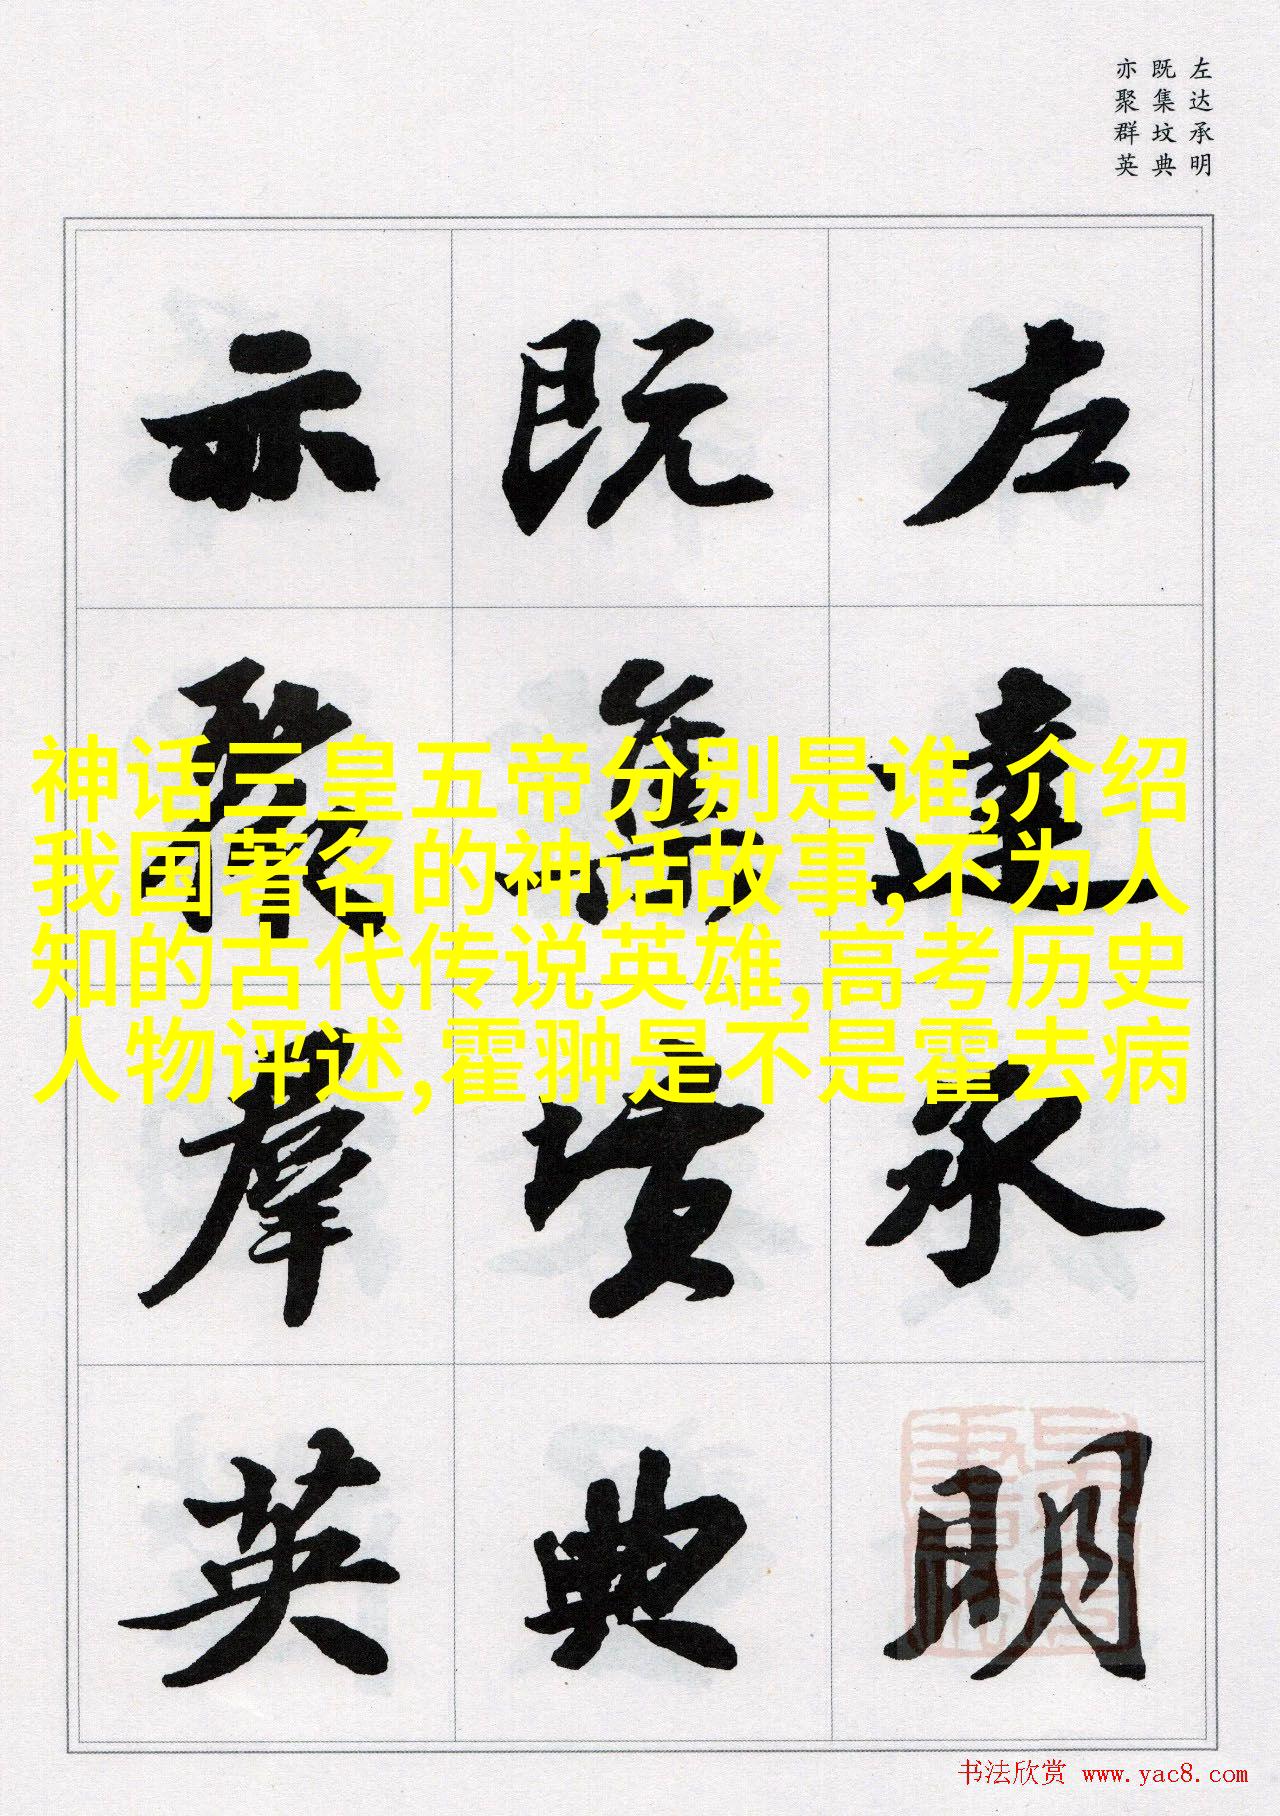 左达承明
既集坟典
亦聚群英
左达承明
既集坟典
亦聚群英
神话三皇五帝分别是谁,介绍
我国著名的神话故事,不为人
知的古代传说英雄,高考历史
人物评述,霍翀是不是霍去病
书法欣赏 www.yac8.com